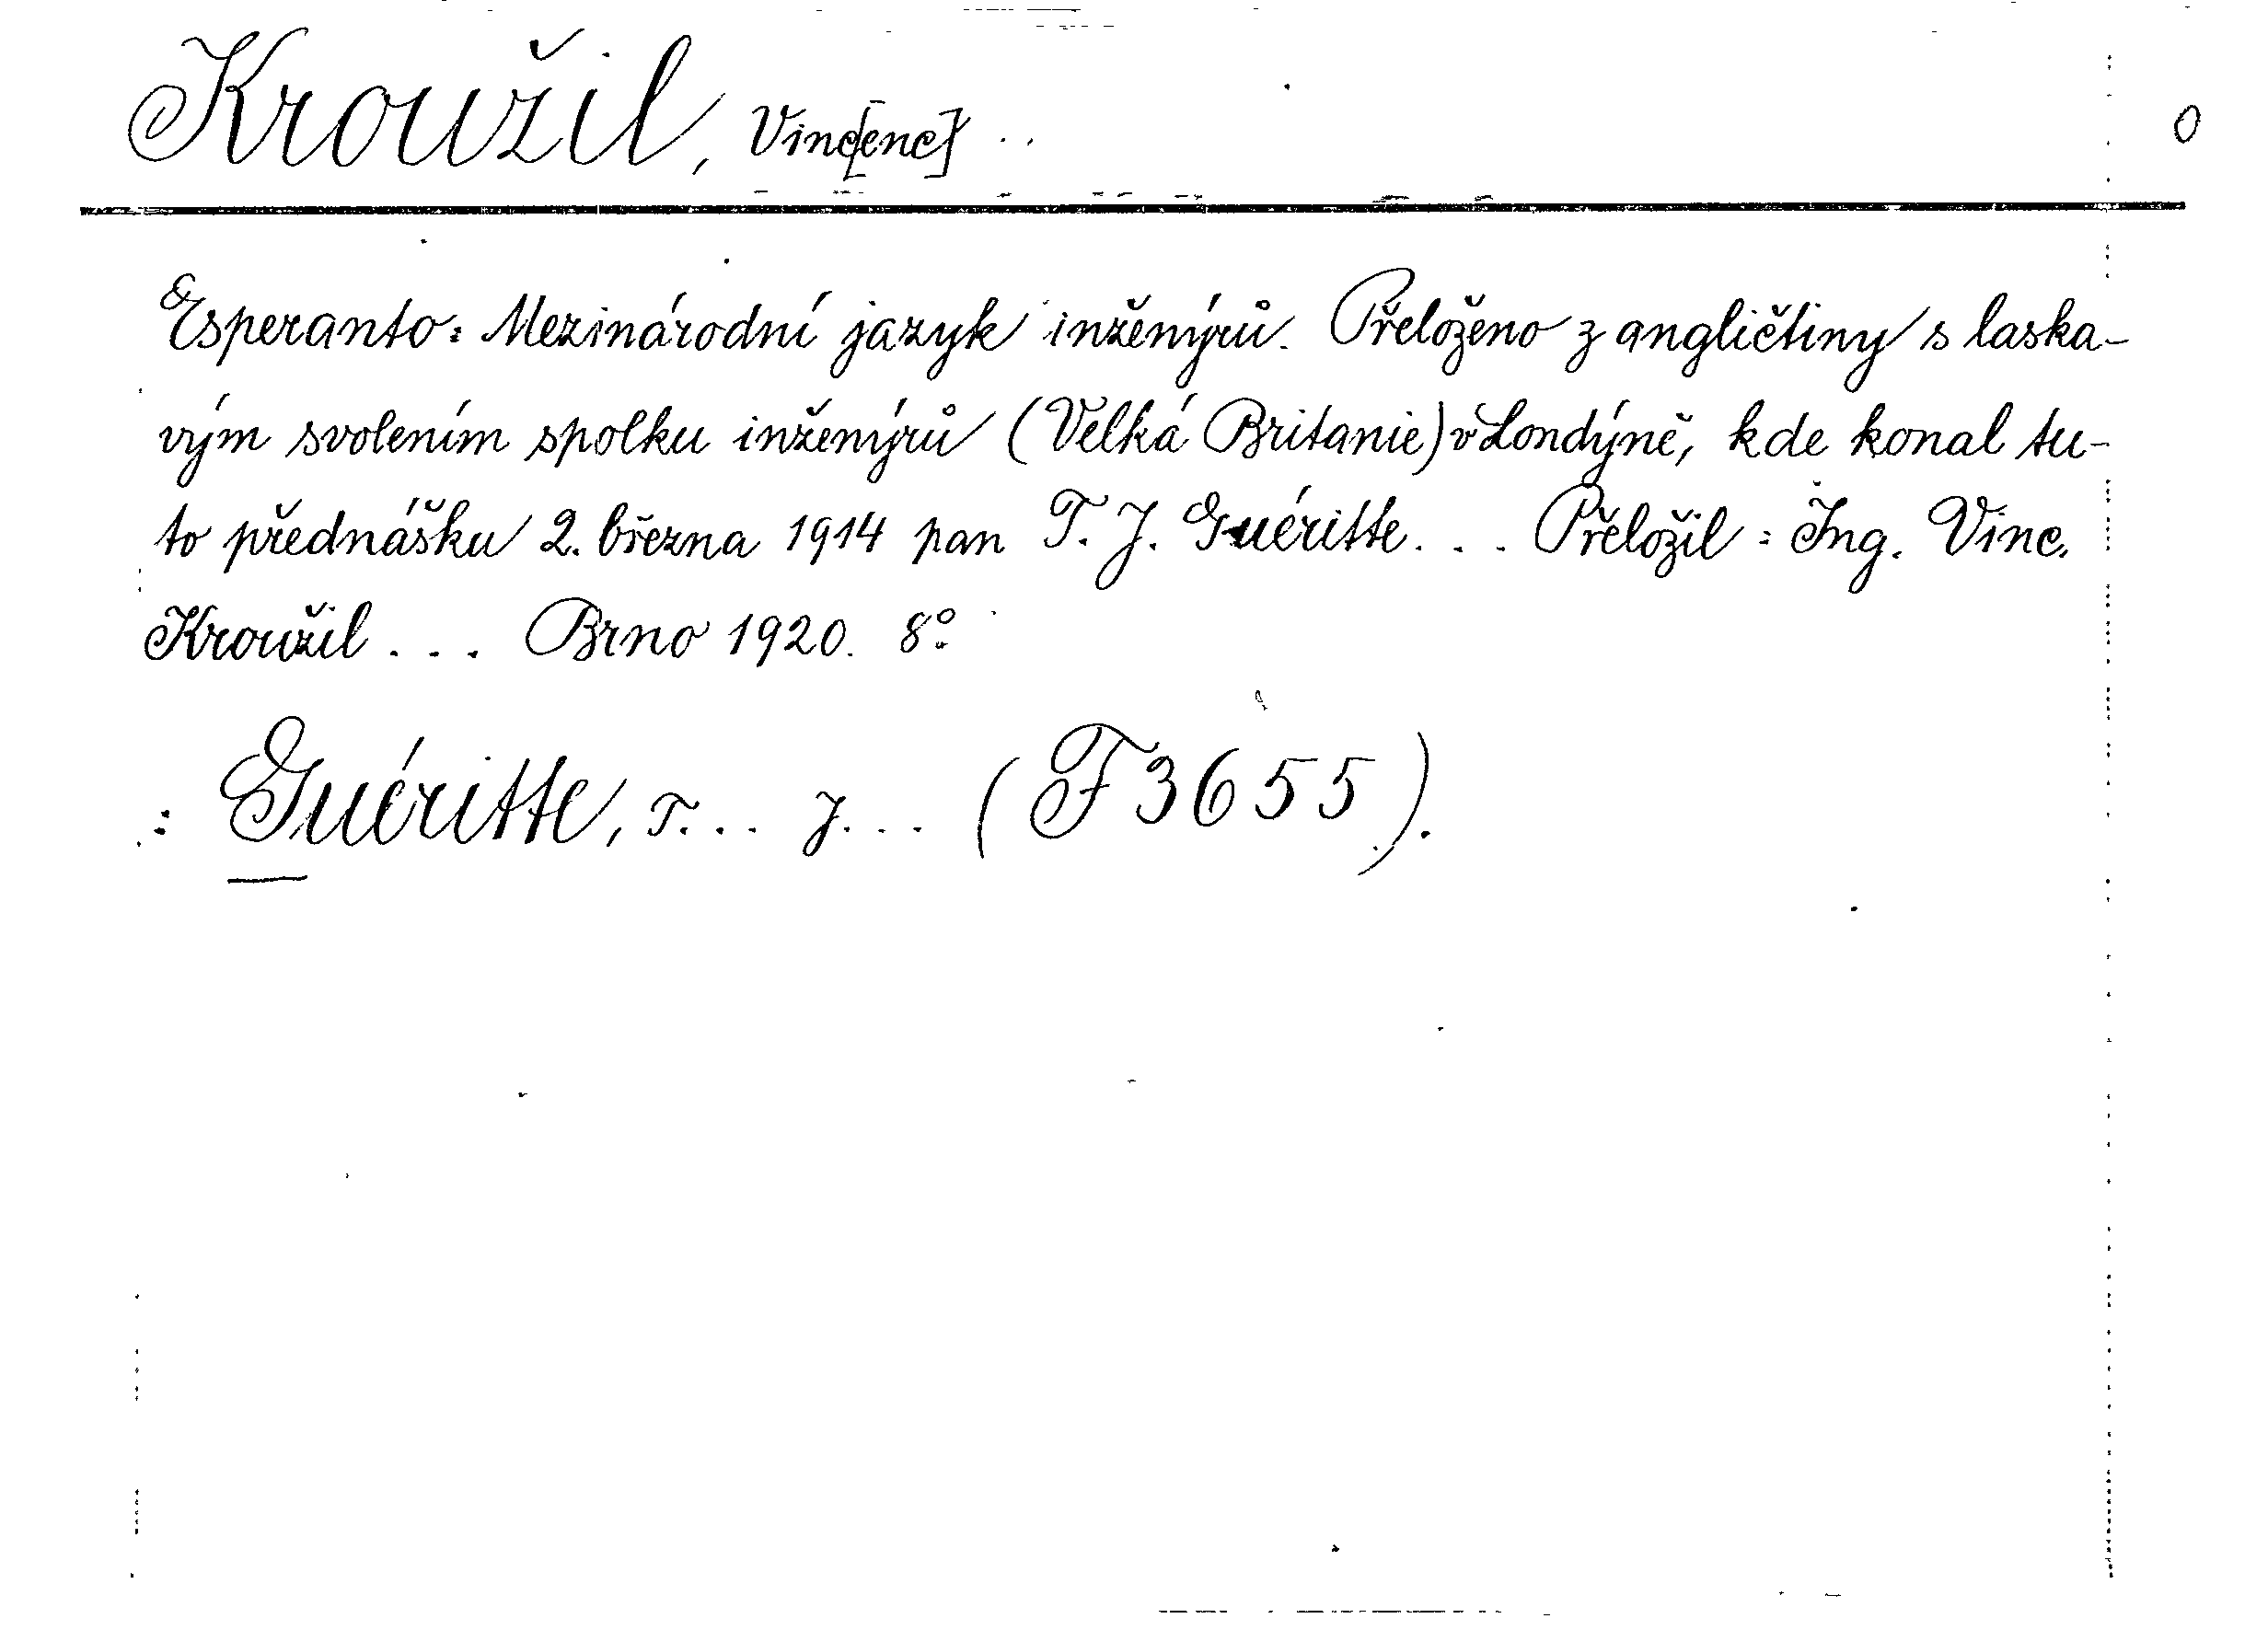 Kroužil, Vinc[enc] ..
0
Esperanto: Mezinárodní jazyk inženýrů. Přeloženo z angličtiny s laska-
vým svolením spolku inženýrů (Velká Britanie) v Londýně, kde konal tu-
to přednášku 2. března 1914 pan T. J. Guéritte... Přeložil: Ing. Vinc.
Kroužil... Brno 1920. 8°.
: Guéritte, T... J... (F 3655).